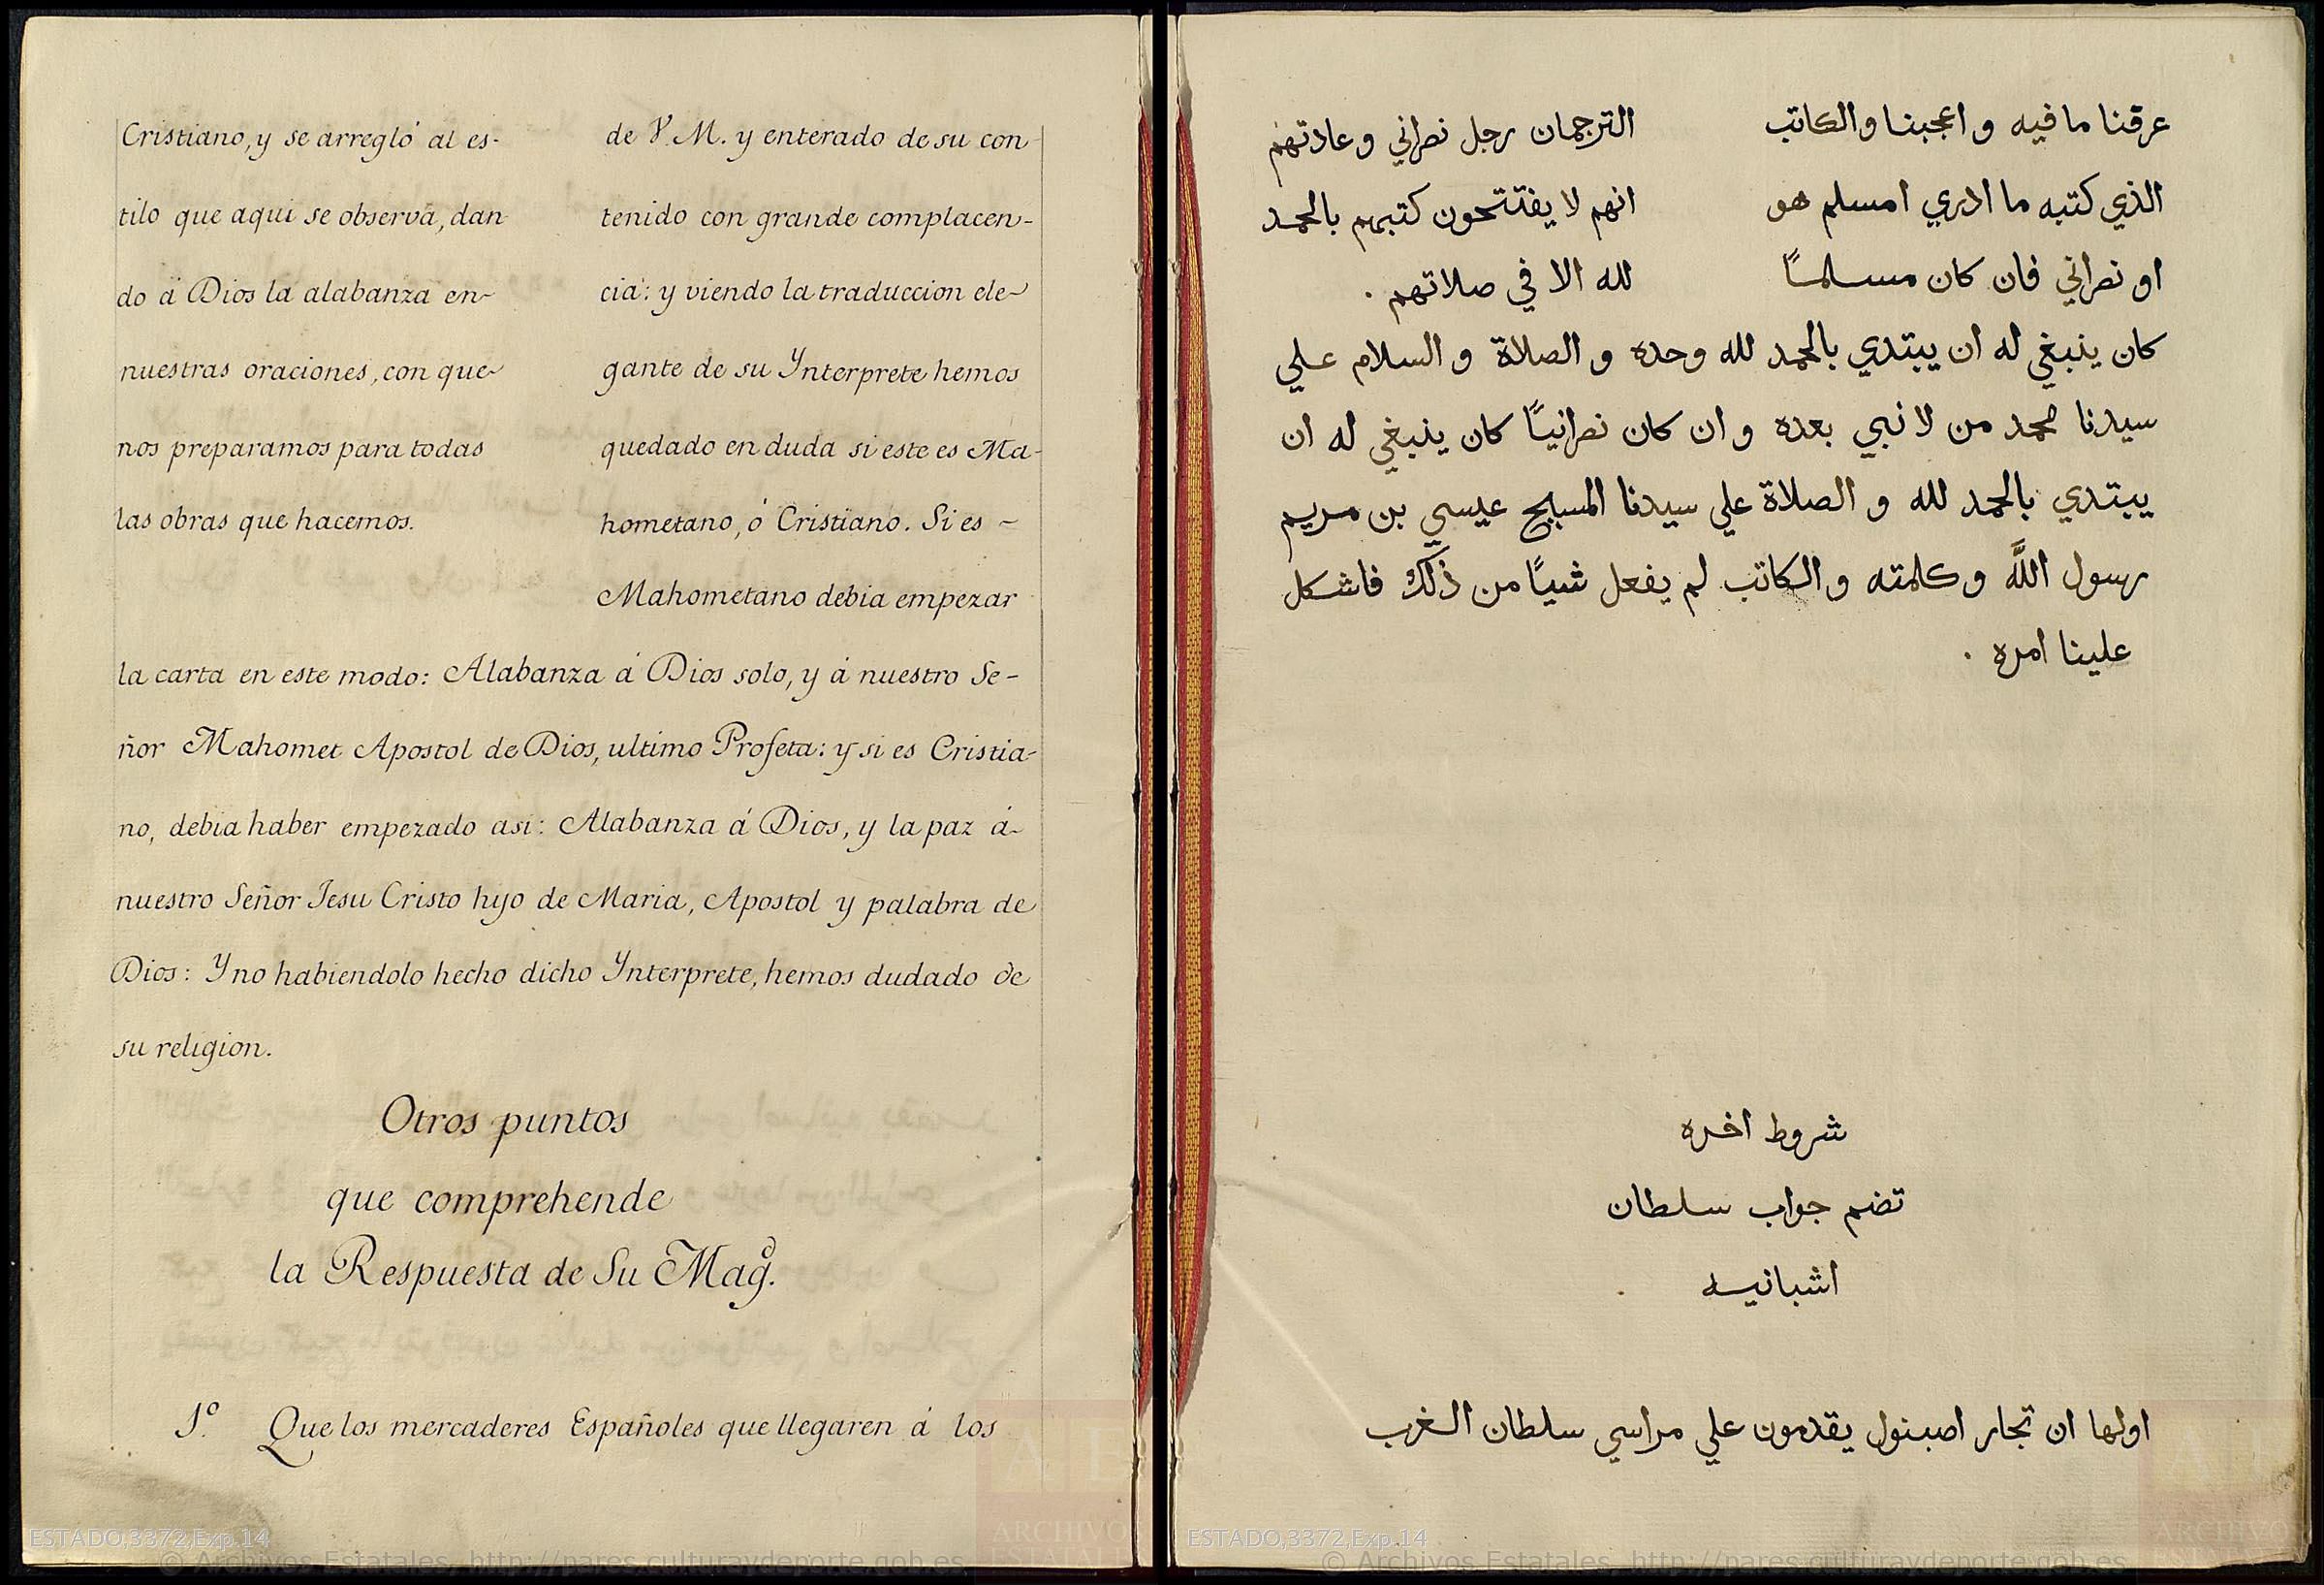 Cristiano, y se arregló al es-
tilo que aqui se observa, dan
do á Dios la alabanza en
nuestras oraciones, con que
nos preparamos para todas
las obras que hacemos.
de V. M. y enterado de su con
tenido con grande complacen-
cia: y viendo la traduccion ele
gante de su Ynterprete hemos
quedado en duda si este es Ma-
hometano, ó Cristiano. Si es
Mahometano debia empezar
la carta en este modo: Alabanza á Dios solo, y á nuestro Se-
ñor Mahomet Apostol de Dios, ultimo Profeta: y si es Cristia-
no, debia haber empezado asi: Alabanza á Dios, y la paz á
nuestro Señor Jesu Cristo hijo de Maria, Apostol y palabra de
Dios: Y no habiendolo hecho dicho Ynterprete, hemos dudado de
su religion.
Otros puntos
que comprehende
la Respuesta de Su Magd.
1.º Que los mercaderes Españoles que llegaren á los
ESTADO,3372,Exp.14
© Archivos Estatales, http://pares.culturaydeporte.gob.es
عرفنا ما فيه و اعجبنا والكاتب
الذي كتبه ما ادري امسلم هو
او نصراني فان كان مسلمًا
الترجمان رجل نصراني و عادتهم
انهم لا يفتتحون كتبهم بالحمد
لله الا في صلاتهم .
كان ينبغي له ان يبتدي بالحمد لله وحده و الصلاة و السلام علي
سيدنا محمد من لا نبي بعده و ان كان نصرانيًا كان ينبغي له ان
يبتدي بالحمد لله و الصلاة علي سيدنا المسيح عيسي بن مريم
رسول اللّه و كلمته و الكاتب لم يفعل شيًا من ذلك فاشكل
علينا امره .
شروط اخره
تضم جواب سلطان
اشبانيه
اولها ان تجار اصبنول يقدمون علي مراسي سلطان الغرب
ESTADO,3372,Exp.14
© Archivos Estatales, http://pares.culturaydeporte.gob.es